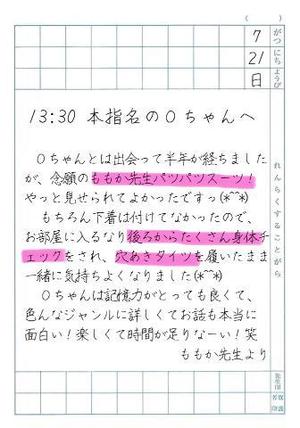 (　　)
7 がつ
21 にち
日 ようび
れんらくすることがら
13:30 本指名のOちゃんへ
Oちゃんとは出会って半年が経ちました
が、念願のももか先生パツパツスーツ！
やっと見せられてよかったですっっ(*^^*)
もちろん下着は付けてなかったので、
お部屋に入るなり後ろからたくさん身体チ
ェックをされ、穴あきタイツを履いたまま
一緒に気持ちよくなりました(*^^*)
Oちゃんは記憶力がとっても良くて、
色んなジャンルに詳しくてお話も本当に
面白い！楽しくて時間が足りなーい！笑
ももか先生より